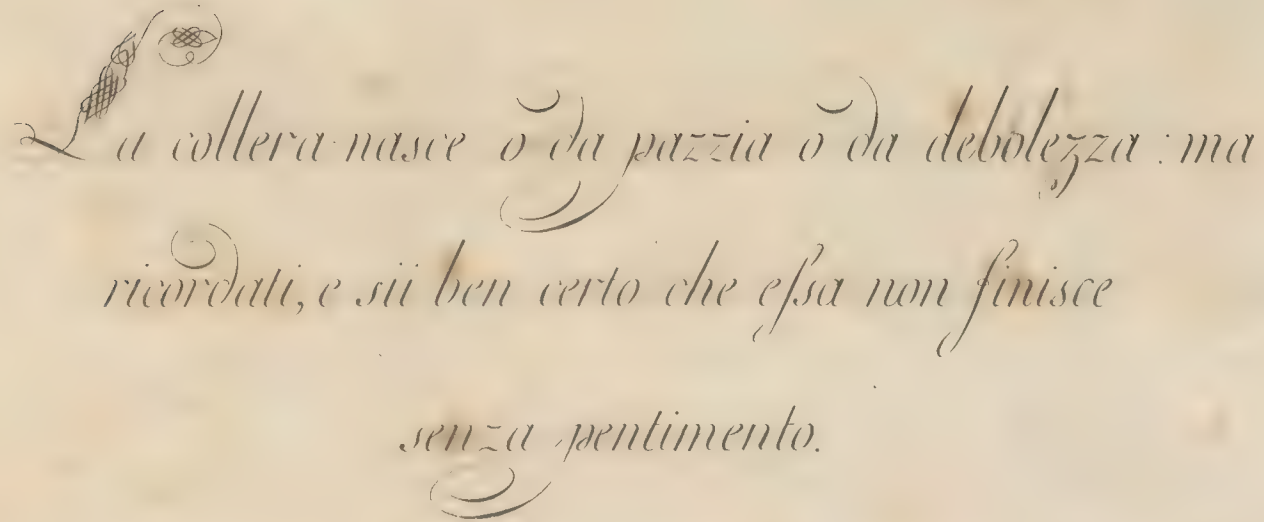 La collera nasce o da pazzia o da debolezza : ma
ricordati, e sii ben certo che eſsa non finisce
senza pentimento.